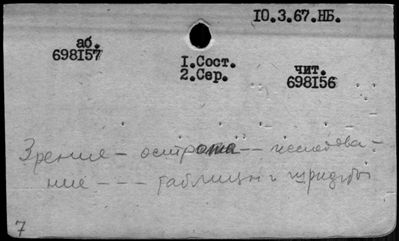 10.3.67.НБ.
аб.
698157
1.Сост.
2.Сер.
чит.
698156
Зрение – острота – – исследова-
ние – – – таблицы и
7